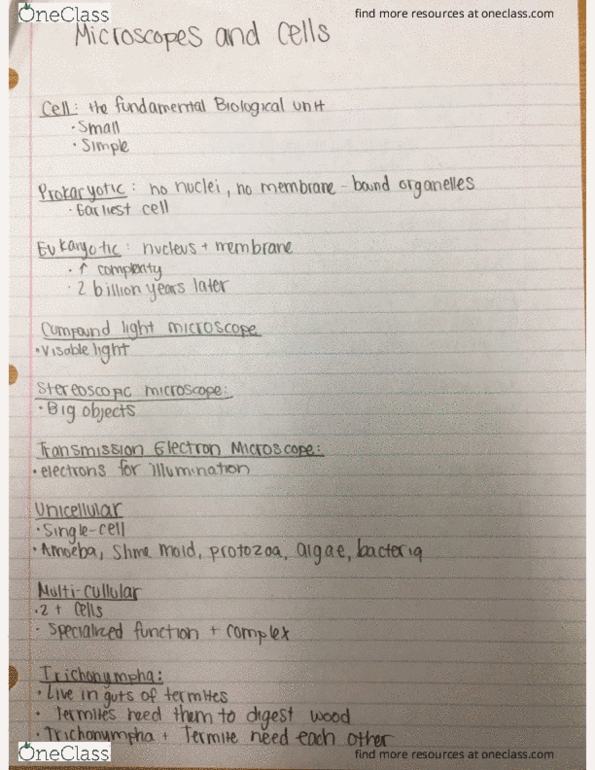 OneClass
find more resources at oneclass.com
Microscopes and Cells
Cell: the fundamental Biological unit
· Small
· Simple
Prokaryotic: no nuclei, no membrane-bound organelles
· Earliest cell
Eukaryotic: nucleus + membrane
· ↑ complexity
· 2 billion years later
Compound light microscope
· Visable light
Stereoscopic microscope:
· Big objects
Transmission Electron Microscope:
· electrons for illumination
Unicellular
· Single-cell
· Amoeba, Slime mold, protozoa, algae, bacteria
Multi-cullular
· 2 + cells
· Specialized function + complex
Trichonympha:
· Live in guts of termites
· Termites need them to digest wood
· Trichonympha + Termite need each other
OneClass
find more resources at oneclass.com